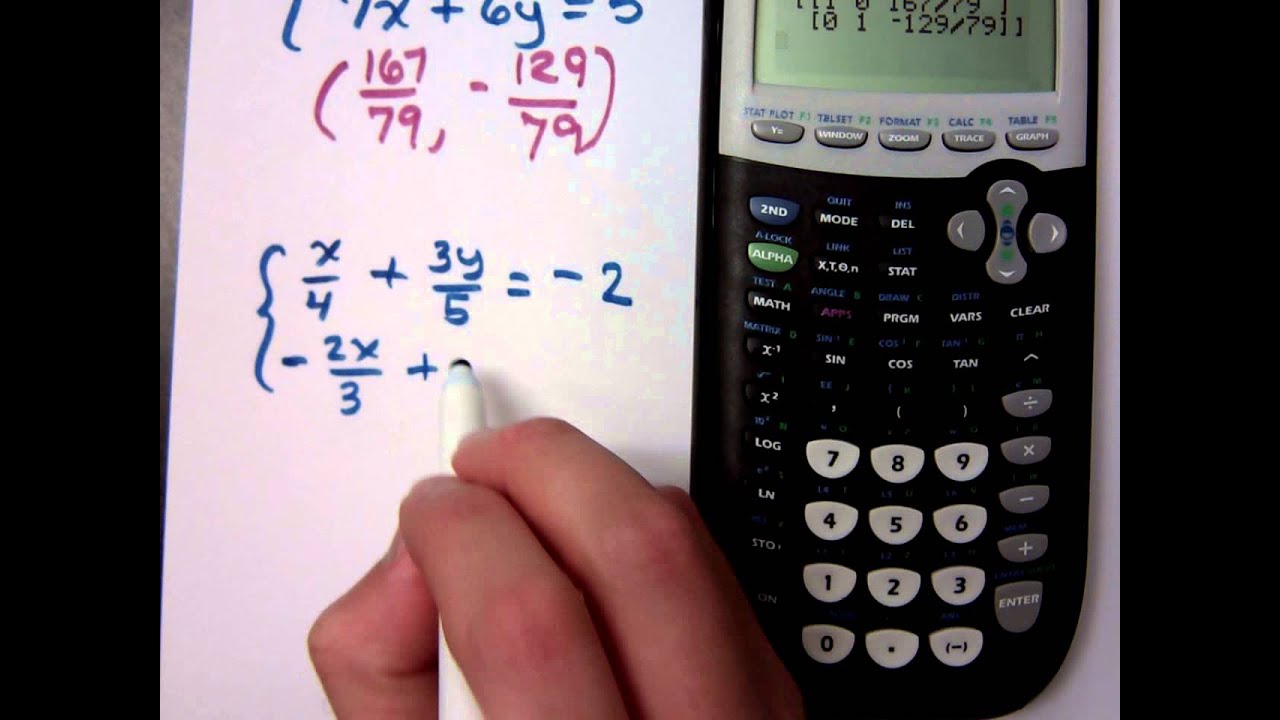 7x + 6y = 5
(167/79, - 129/79)
{ x/4 + 3y/5 = - 2
- 2x/3 +
[[1 0 167/79 ]
[0 1 -129/79]]
STAT PLOT F1 TBLSET F2 FORMAT F3 CALC F4 TABLE F5
Y= WINDOW ZOOM TRACE GRAPH
QUIT INS
2ND MODE DEL
A-LOCK LINK LIST
ALPHA X,T,Θ,n STAT
TEST A ANGLE B DRAW C DISTR
MATH APPS PRGM VARS CLEAR
MATRIX D SIN⁻¹ E COS⁻¹ F TAN⁻¹ G π H
x⁻¹ SIN COS TAN
√ I EE J
x² , ( ) ÷
10ˣ N
LOG 7 8 9 ×
LN 4 5 6 −
STO 1 2 3 +
ON 0 . (−) ENTER